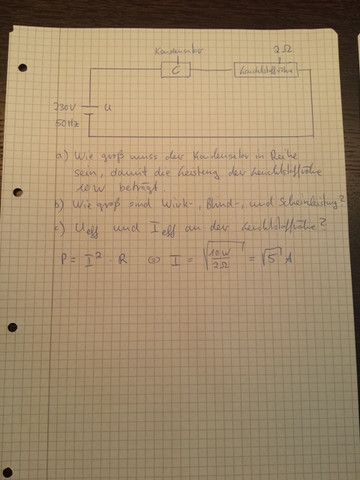 Kondensator 2 Ω
C Leuchtstoffröhre
230V U
50Hz
a) Wie groß muss der Kondensator in Reihe
sein, damit die Leistung der Leuchtstoffröhre
10W beträgt.
b) Wie groß sind Wirk-, Blind-, und Scheinleistung?
c) Ueff und Ieff an der Leuchtstoffröhre?
P = I² · R ⇔ I = √(10W / 2Ω) = √5 A